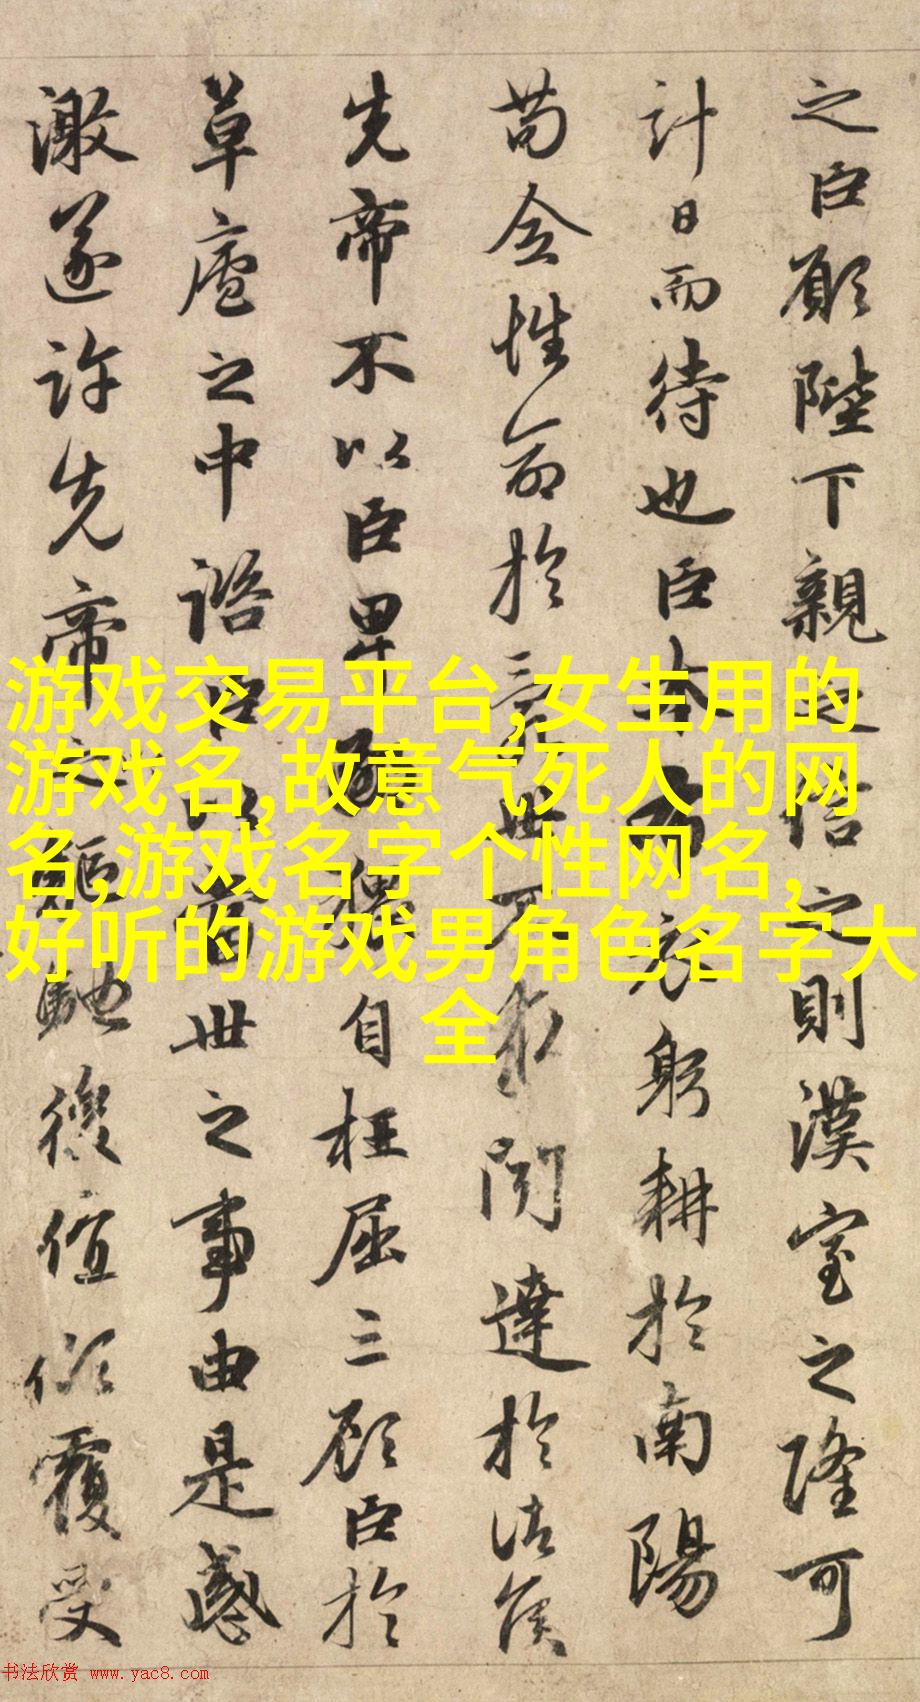 之臣願陛下親之信之則漢室之隆可
計日而待也臣本布衣躬耕於南陽
苟全性命於亂世不求聞達於諸侯
先帝不以臣卑鄙猥自枉屈三顧臣於
草廬之中諮臣以當世之事由是感
激遂許先帝驅馳後值傾覆受
游戏交易平台,女生用的
游戏名,故意气死人的网
名,游戏名字个性网名,
好听的游戏男角色名字大
全
书法欣赏 www.yac8.com